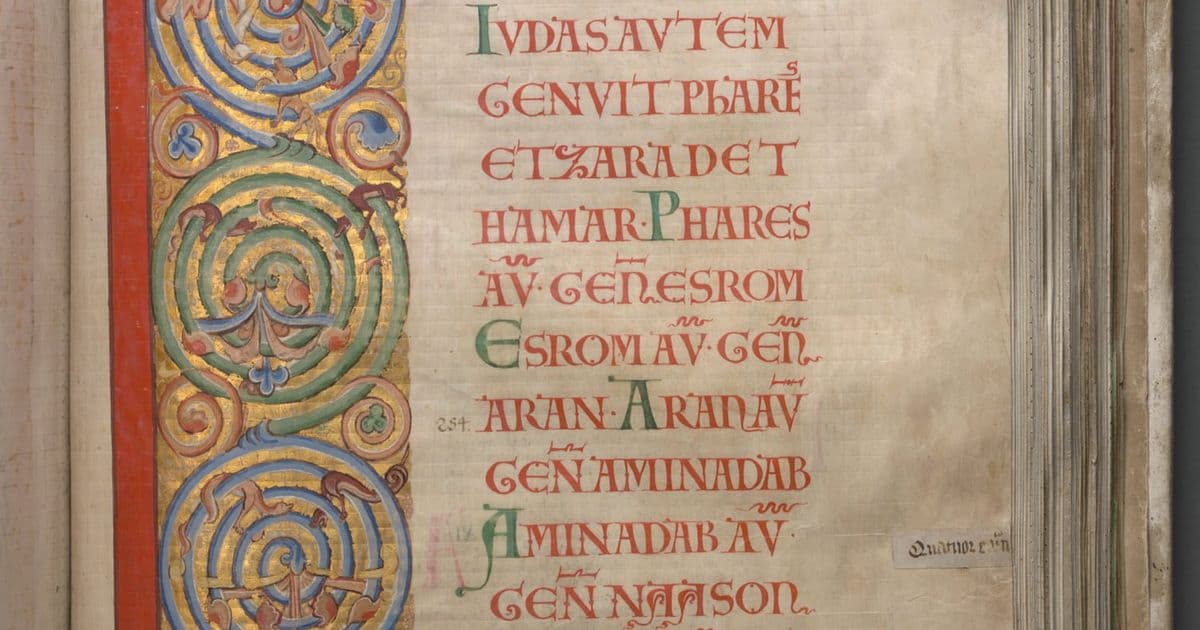 IVDAS AVTEM
GENVIT PhARES
ET ZARA DE T
HAMAR· PHARES
AV̄· GEN̄ ESROM
ESROM AV̄· GEN̄
ARAN· ARAN AV̄
254.
GEN̄ AMINADAB
AMINADAB AV̄·
GEN̄ NAASON.
Quatuor